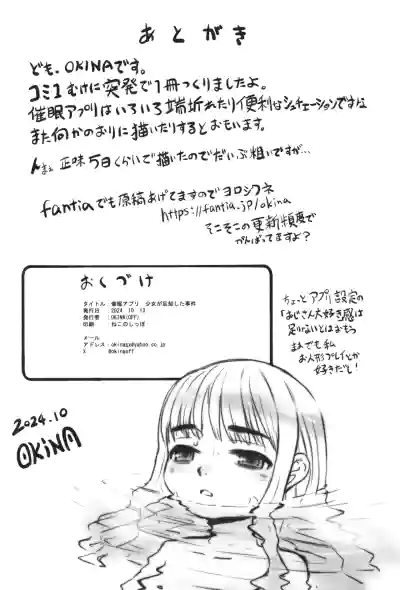 あとがき
ども、OKINAです。
コミ1むけに突発で1冊つくりましたよ。
催眠アプリはいろいろ端折れたり便利なシュチエーションですな
また何かのおりに描いたりするとおもいます。
んまぁ正味5日くらいで描いたのでだいぶ粗いですが…
fantiaでも原稿あげてますのでヨロシコネ
https://fantia.jp/okina
そこそこの更新頻度で
がんばってますよ?
おくづけ
タイトル:催眠アプリ 少女が忘却した事件
発行日 :2024 10 13
発行者 :OKINA(OFF)
印刷 :ねこのしっぽ
メール
アドレス:okinaga@yahoo.co.jp
X @okinaoff
ちょーとアプリ設定の
「おじさん大好き」感は
足りないとはおもう
まぁでも私
お人形プレイとか
好きだし!
2024.10
OKINA